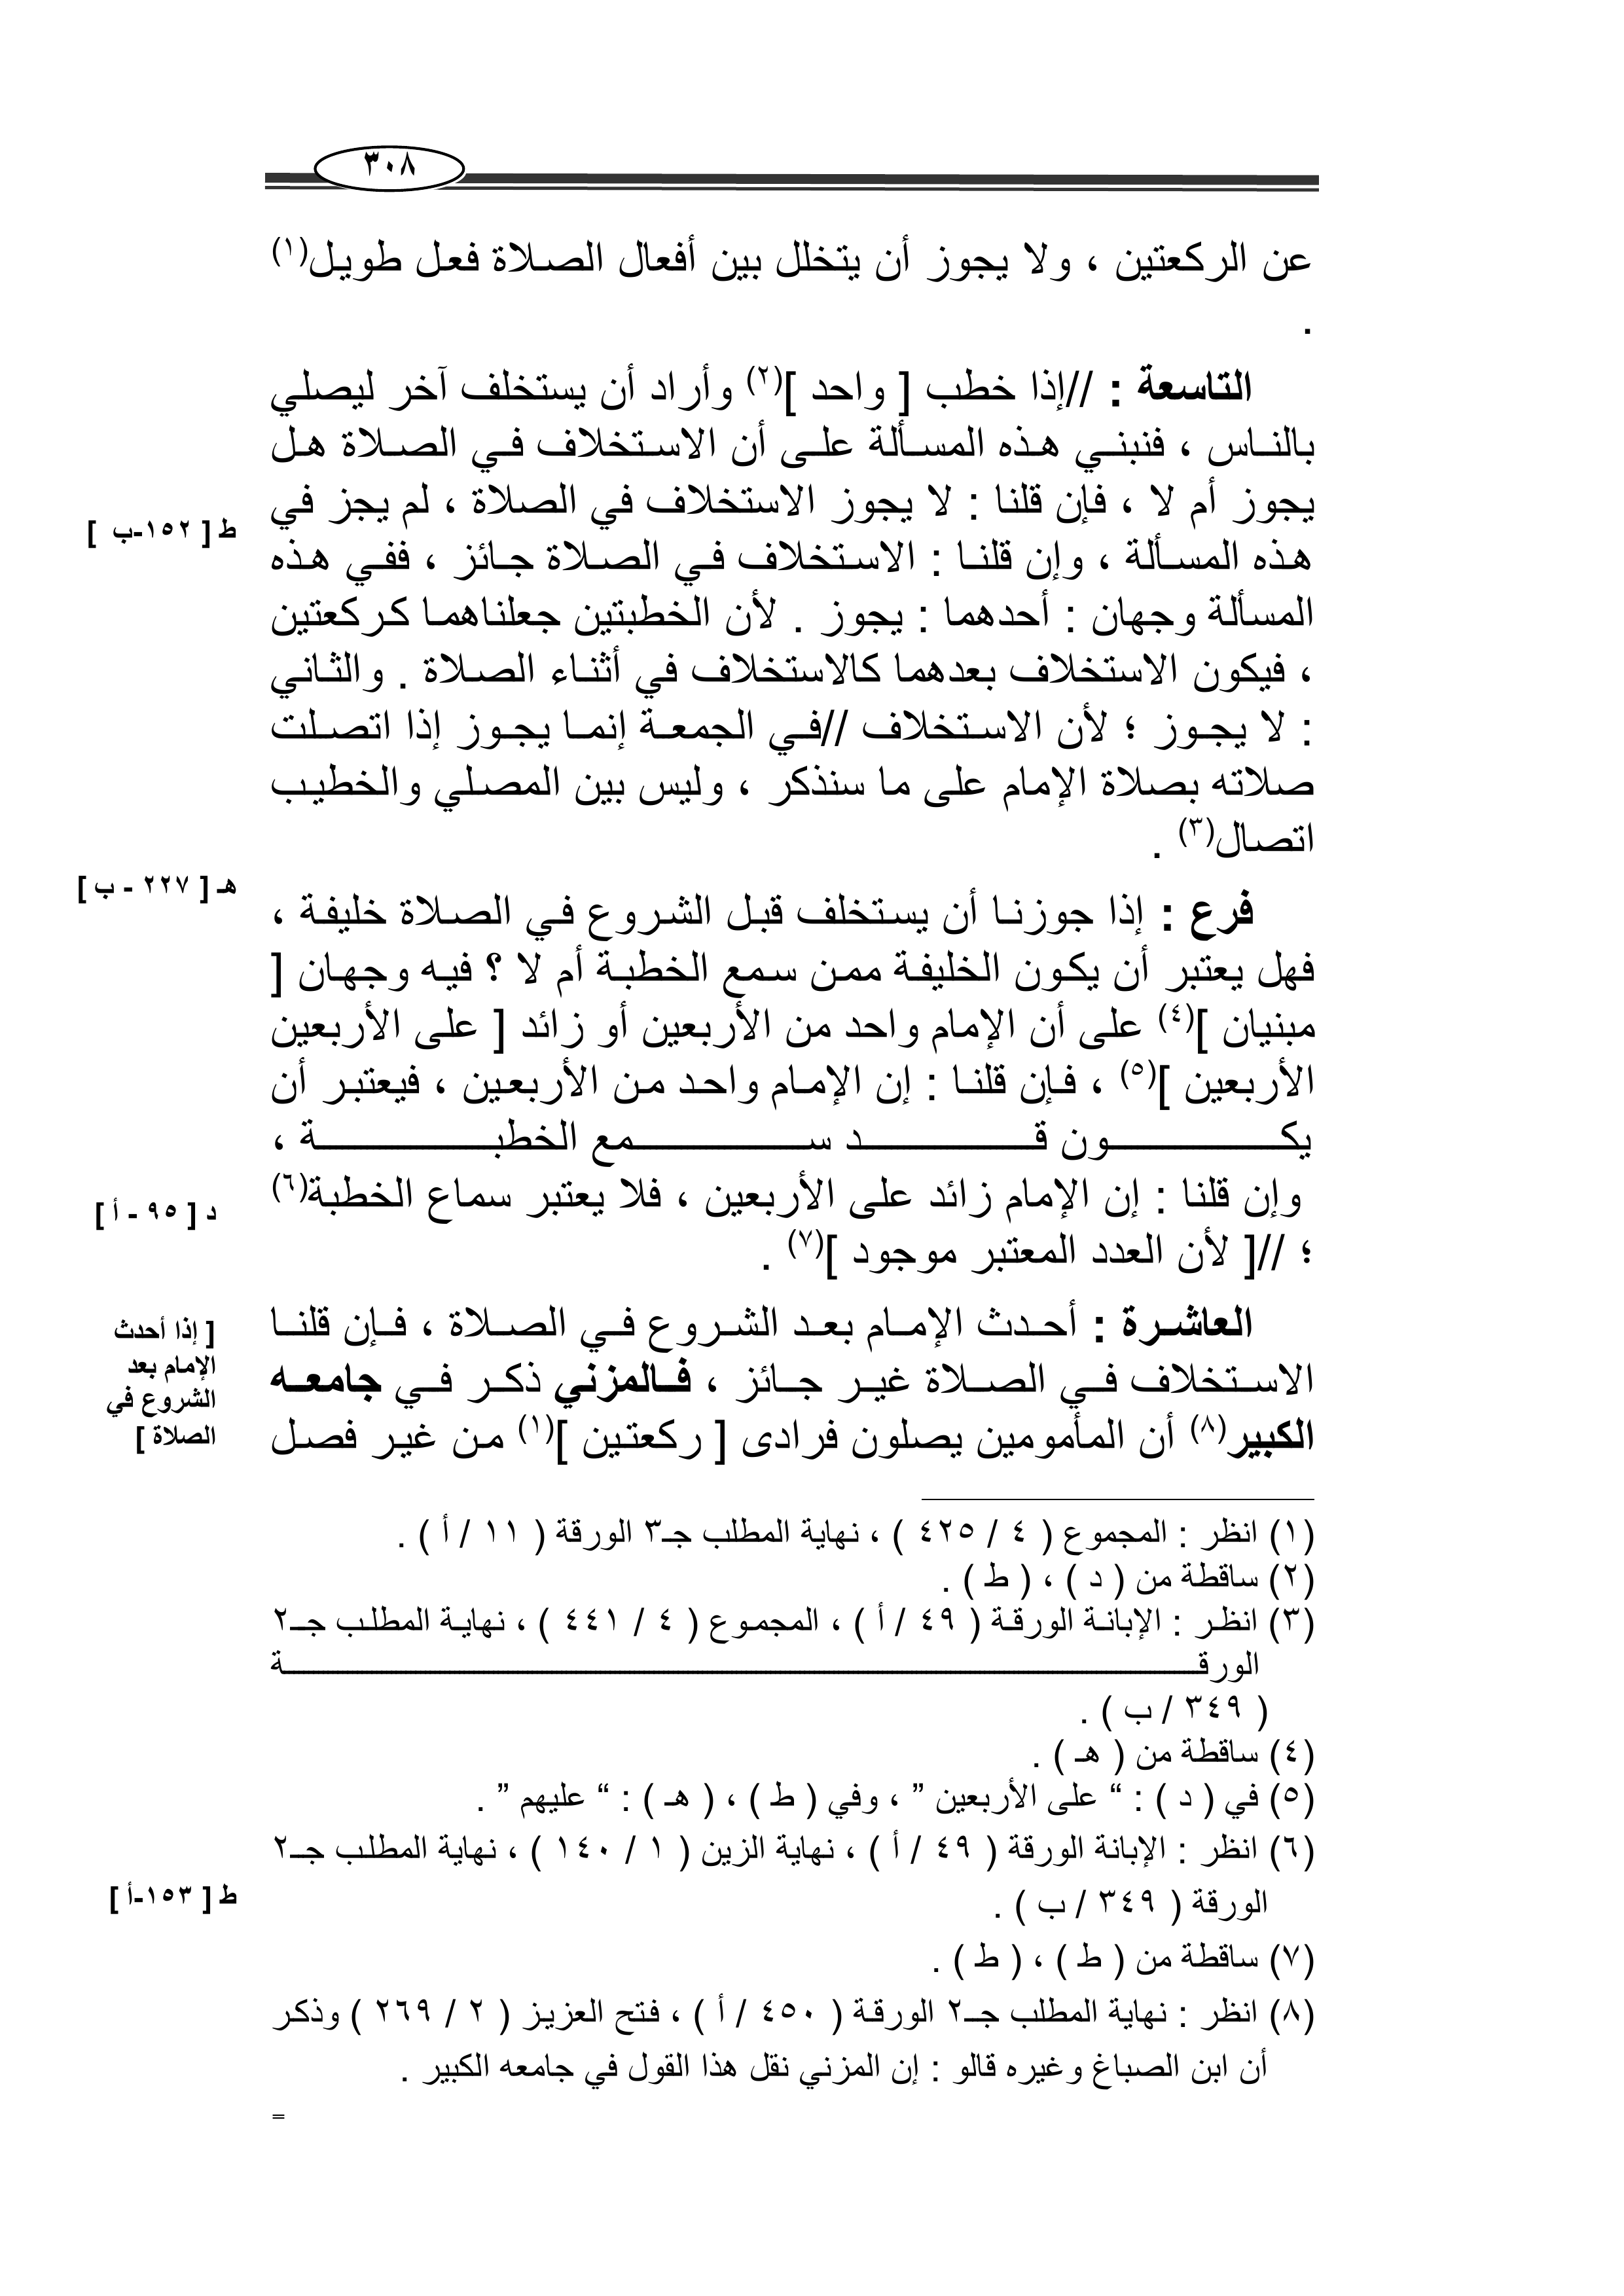 ٣٠٨
عن الركعتين ، ولا يجوز أن يتخلل بين أفعال الصلاة فعل طويل(١)
.
التاسعة : //إذا خطب [ واحد ](٢) وأراد أن يستخلف آخر ليصلي
بالناس ، فنبني هذه المسألة على أن الاستخلاف في الصلاة هل
يجوز أم لا ، فإن قلنا : لا يجوز الاستخلاف في الصلاة ، لم يجز في
ط [ ١٥٢-ب ]
هذه المسألة ، وإن قلنا : الاستخلاف في الصلاة جائز ، ففي هذه
المسألة وجهان : أحدهما : يجوز . لأن الخطبتين جعلناهما كركعتين
، فيكون الاستخلاف بعدهما كالاستخلاف في أثناء الصلاة . والثاني
: لا يجوز ؛ لأن الاستخلاف //في الجمعة إنما يجوز إذا اتصلت
صلاته بصلاة الإمام على ما سنذكر ، وليس بين المصلي والخطيب
اتصال(٣) .
هـ [ ٢٢٧ - ب ]
فرع : إذا جوزنا أن يستخلف قبل الشروع في الصلاة خليفة ،
فهل يعتبر أن يكون الخليفة ممن سمع الخطبة أم لا ؟ فيه وجهان [
مبنيان ](٤) على أن الإمام واحد من الأربعين أو زائد [ على الأربعين
الأربعين ](٥) ، فإن قلنا : إن الإمام واحد من الأربعين ، فيعتبر أن
يكون قد سمع الخطبة ،
وإن قلنا : إن الإمام زائد على الأربعين ، فلا يعتبر سماع الخطبة(٦)
د [ ٩٥ - أ ]
؛ //[ لأن العدد المعتبر موجود ](٧) .
العاشرة : أحدث الإمام بعد الشروع في الصلاة ، فإن قلنا
الاستخلاف في الصلاة غير جائز ، فالمزني ذكر في جامعه
الكبير(٨) أن المأمومين يصلون فرادى [ ركعتين ](١) من غير فصل
[ إذا أحدث
الإمام بعد
الشروع في
الصلاة ]
(١) انظر : المجموع ( ٤ / ٤٢٥ ) ، نهاية المطلب جـ٣ الورقة ( ١١ / أ ) .
(٢) ساقطة من ( د ) ، ( ط ) .
(٣) انظر : الإبانة الورقة ( ٤٩ / أ ) ، المجموع ( ٤ / ٤٤١ ) ، نهاية المطلب جـ٢
الورقة
( ٣٤٩ / ب ) .
(٤) ساقطة من ( هـ ) .
(٥) في ( د ) : “ على الأربعين ” ، وفي ( ط ) ، ( هـ ) : “ عليهم ” .
(٦) انظر : الإبانة الورقة ( ٤٩ / أ ) ، نهاية الزين ( ١ / ١٤٠ ) ، نهاية المطلب جـ٢
الورقة ( ٣٤٩ / ب ) .
ط [ ١٥٣-أ ]
(٧) ساقطة من ( ط ) ، ( ط ) .
(٨) انظر : نهاية المطلب جـ٢ الورقة ( ٤٥٠ / أ ) ، فتح العزيز ( ٢ / ٢٦٩ ) وذكر
أن ابن الصباغ وغيره قالو : إن المزني نقل هذا القول في جامعه الكبير .
=